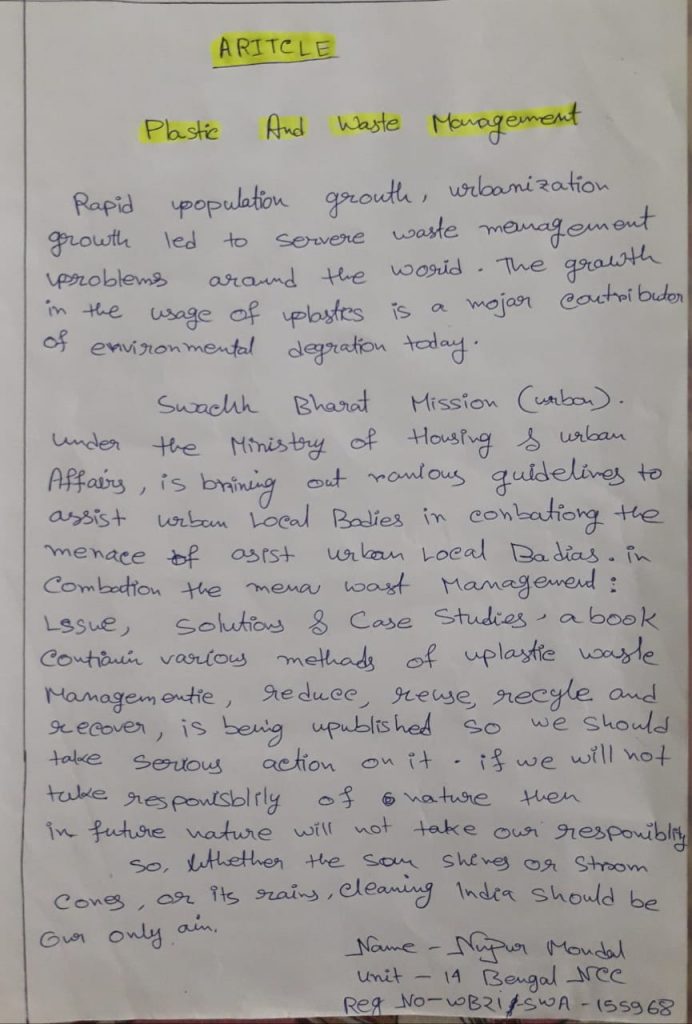 ARITCLE
Plastic And Waste Management
Rapid population growth, urbanization
growth led to servere waste menagement
problems around the world. The growth
in the usage of plastcs is a mojar contributor
of environmental degration today.
Swachh Bharat Mission (urban).
under the Ministry of Housing & urban
Affairs, is brining out various guidelines to
assist urban Local Badies in conbationg the
menace of asist urban Local Badias. in
Combation the mena wast Management:
Lssue, solutions & Case Studies, a book
Contianin various methads of uplastic waste
Managementie, reduce, reuse, recyle and
recover, is being upublished so we should
take serious action on it. if we will not
take responisblily of nature then
in future nature will not take our responiblity
so, Whether the san shines or stroom
Cones, or its rains, cleaning India should be
our only ain.
Name - Nupur Mondal
Unit - 14 Bengal NCC
Reg No-WB21/SWA-155968